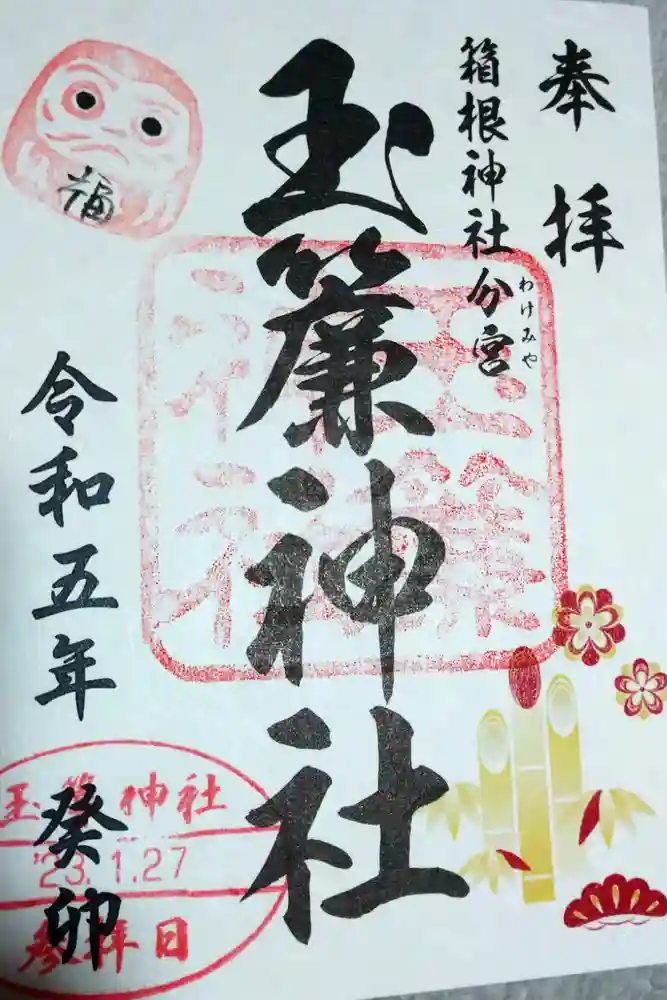 奉拝
箱根神社分宮
わけみや
玉簾神社
福
令和五年
癸卯
玉簾神社
'23.1.27
参拝日
玉簾
神社